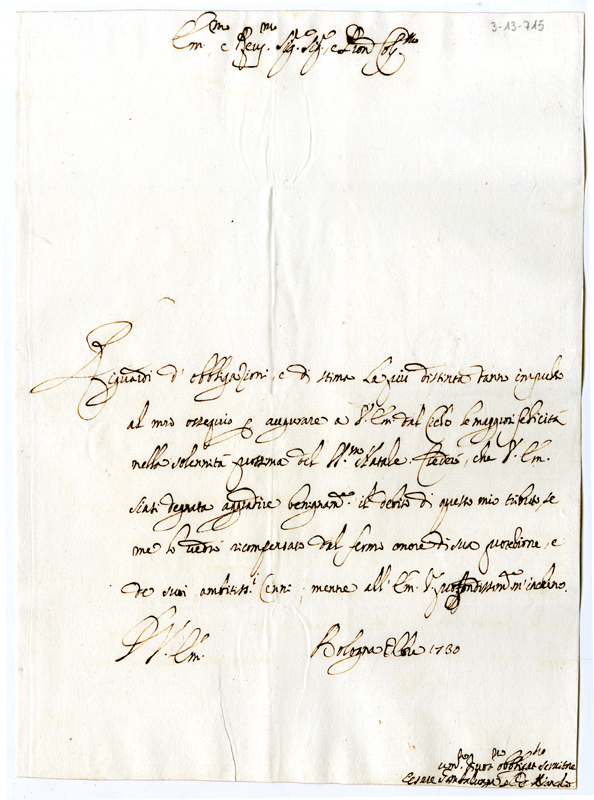 3-13-715
Em.mo e Rev.mo Sig.r Sig.r e Pron Col.mo
Riguardi d' obbligazioni, e di stima la più distinta danno impulso
al mio ossequio per augurare a V.ra Em. dal Cielo le maggiori felicità
nella solennità prossima del SS.mo Natale. Crederò, che V.ra Em.
siasi degnata aggradire benignam.te il debito di questo mio tributo, se
me lo vedrò ricompensato dal fermo onore di sua protezione, e
de suoi ambitiss.i Cenni; mentre all' Em. V.ra profondissim.e m'inchino.
D V.ra Em.
Bologna Xbre 1730
obbligat Servitore
Cesare